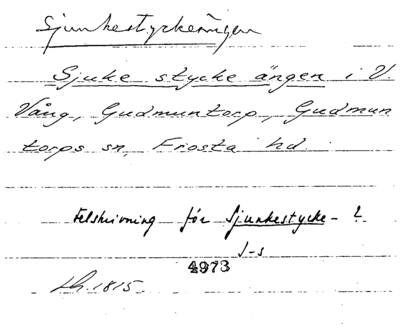 Sjunkestyckeängen
Sjuke stycke ängen i V.
Vång, Gudmuntorp, Gudmun
torps sn, Frosta hd
Felskrivning för Sjunkestycke- ?
J-s
4973
Lh. 1815.